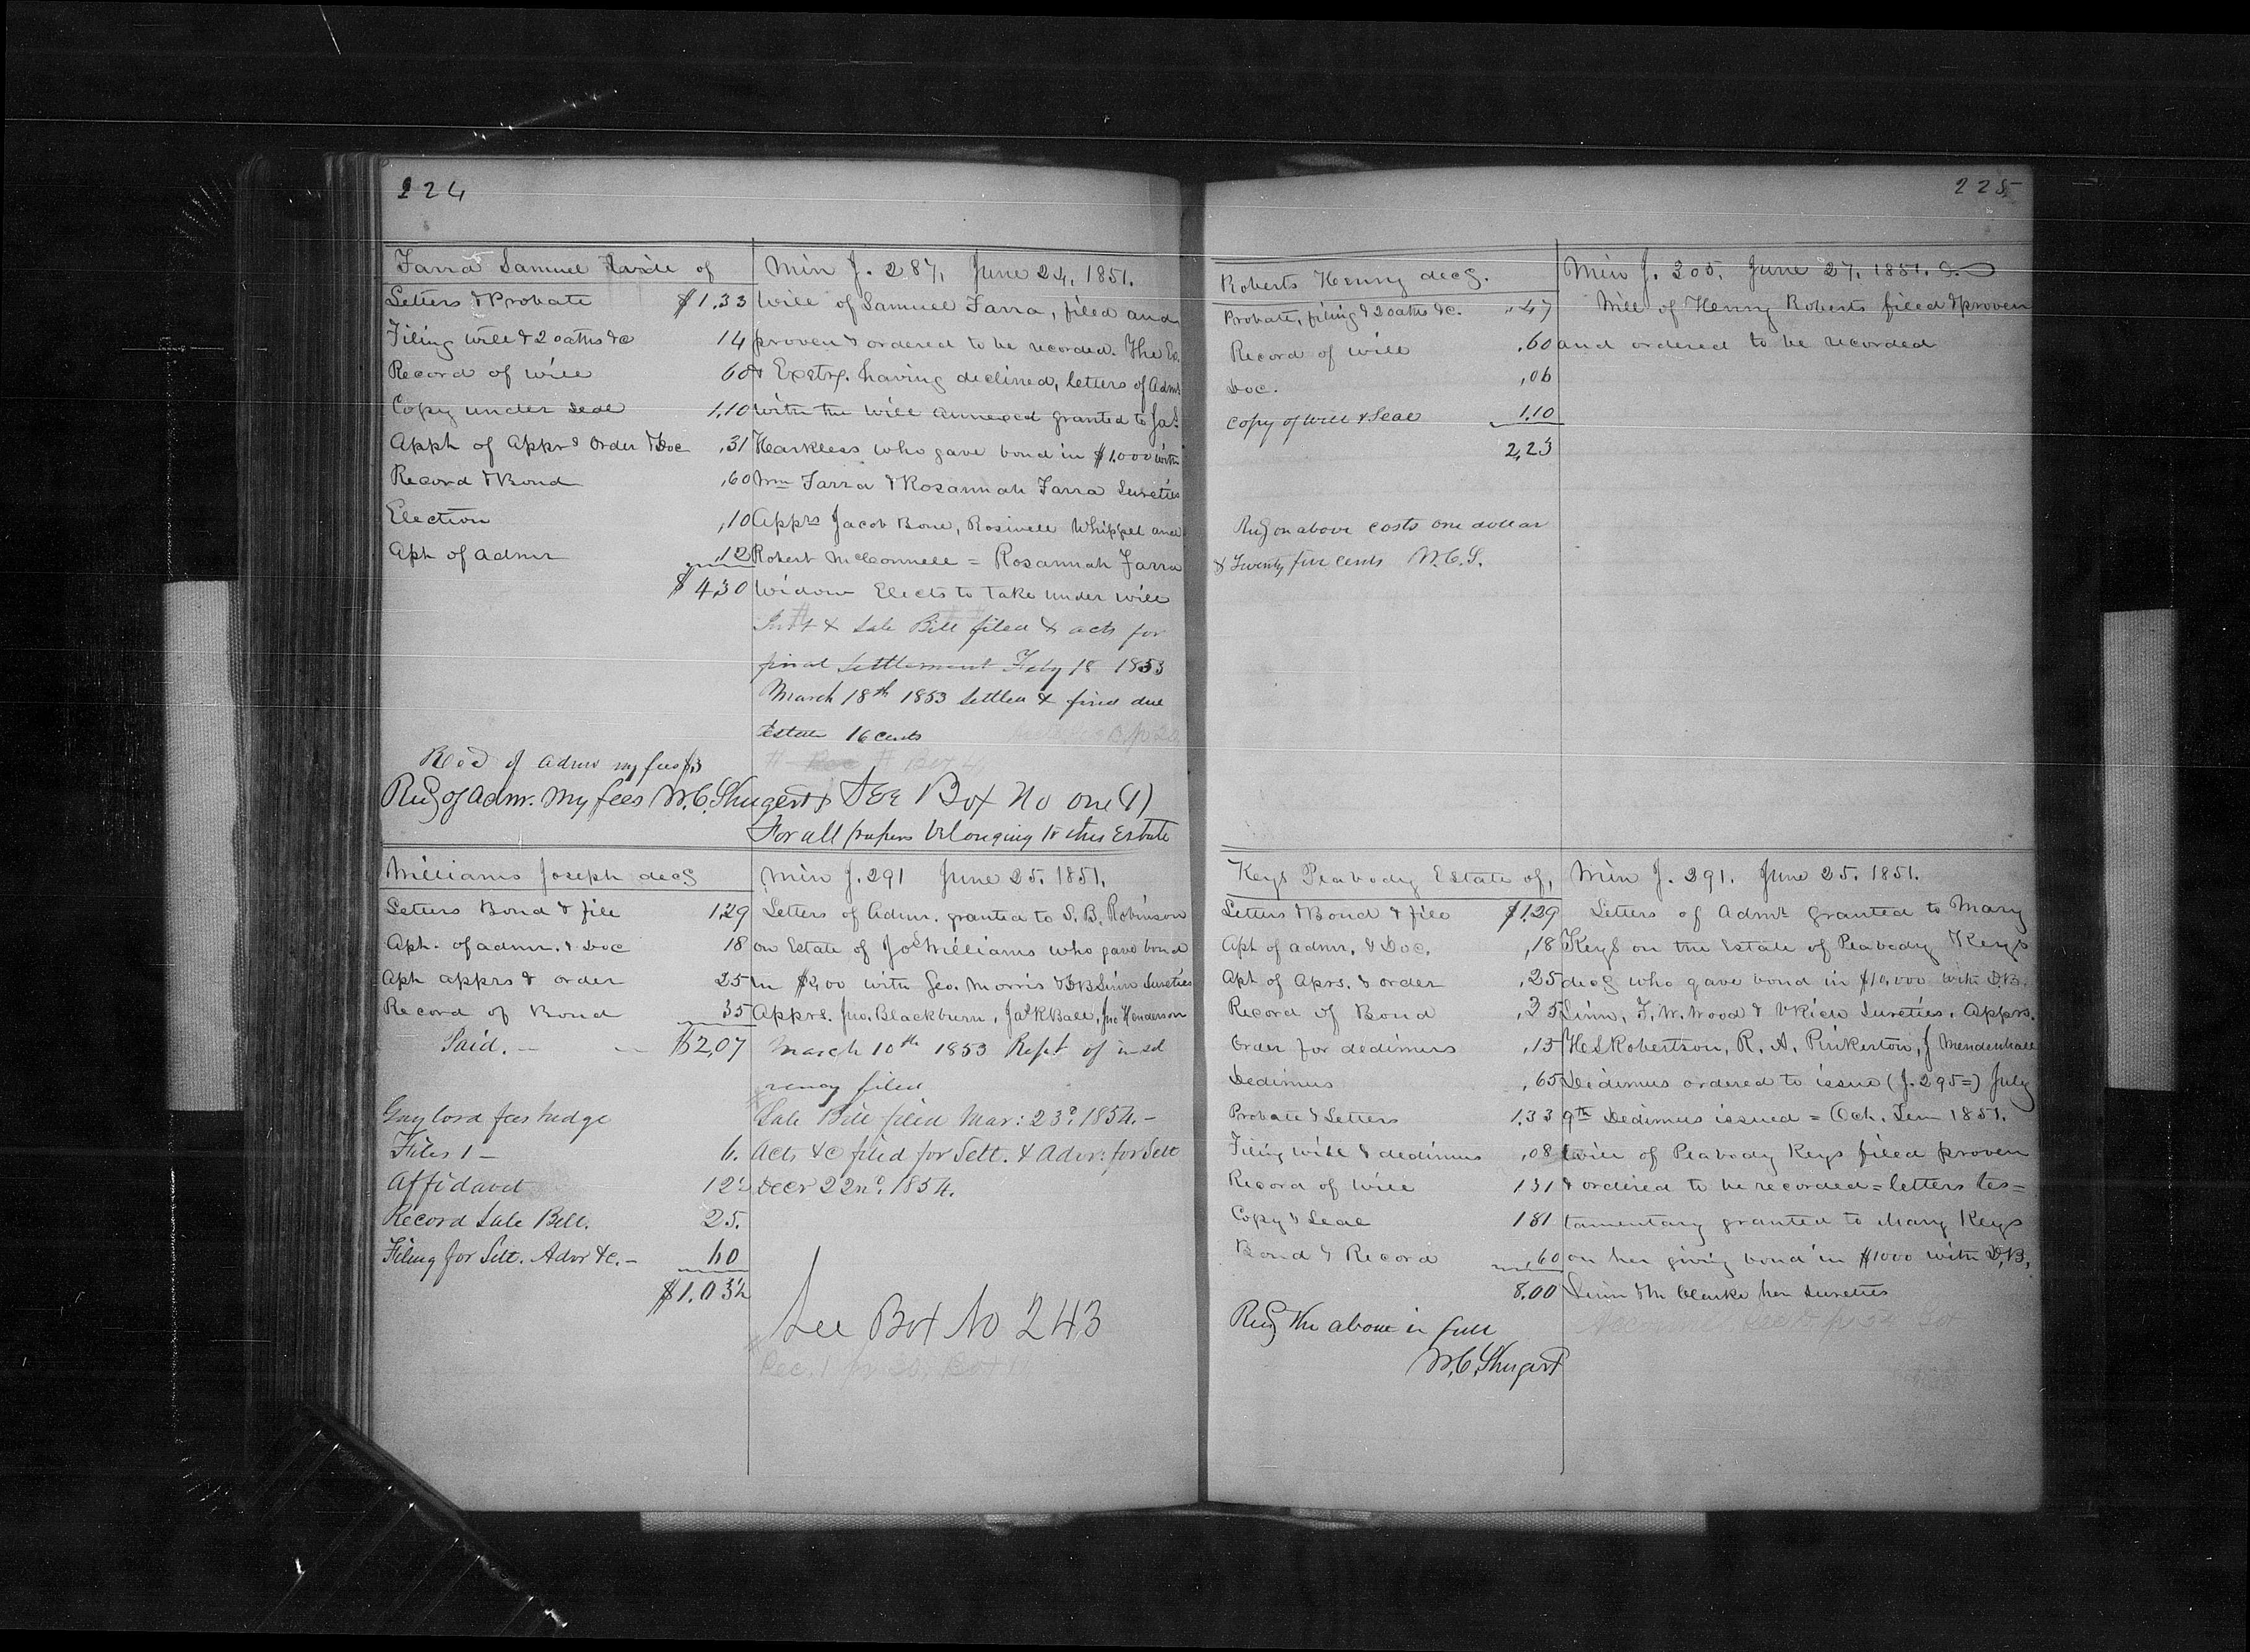 224
Farra Samuel Estate of
Letters & Probate $1.33
Filing will & 2 oaths &c 14
Record of will 60
Copy under seal 1.10
Appt of Apprs Order & Doc .31
Record & Bond .60
Election .10
Apt of admr .12
$4.30
Recd of Admr my fees
Recd of Adm. My fees W. C. Shugert
Min J. 287. June 24. 1851.
Will of Samuel Farra, filed and
proven & ordered to be recorded. The Ex.
& Exetrx. having declined, letters of Adms
with the will annexed granted to Jas.
Harkless who gave bond in $1.000 with
Wm Farra & Rosannah Farra Sureties
Apprs Jacob Bone, Roswell Whippel and
Robert McConnell = Rosannah Farra
Widow Elects to take under will
Invt & Sale Bill filed & acts for
final settlement Feby 18 1853
March 18th 1853 Settled & find due
Estate 16 cents
See Box No one (1)
For all papers belonging to this Estate
Williams Joseph decd
Letters Bond & file 1.29
Apt. of admr. & Doc 18
Apt apprs & order 25
Record of Bond 35
Paid. — $2,07
Gaylord fees Judge
Files 1 — 6.
Affidavit 12
Record Sale Bill. 25.
Filing for Sett. Advr &c. — 60
Min J. 291 June 25. 1851.
Letters of Admr. granted to S. B. Robinson
on Estate of Jos Williams who gave bond
in $200 with Geo. Morris & DB Linn Sureties
Apprs. Jno. Blackburn, Jas R Ball, Jno Henderson
March 10th 1853 Rept of insol
vency filed
Sale Bill filed Mar: 23d. 1854. —
Acts &c filed for Sett. & Advr: for Sett
Decr 22nd. 1854.
See Box No 243
225
Roberts Henry decd.
Probate, filing & 2 oaths &c. .47
Record of will .60
Doc. .06
Copy of will & Seal 1.10
2.23
Recd on above costs one dollar
& Twenty five cents W. C. S.
Min J. 305. June 27. 1851.
Will of Henry Roberts filed & proven
and ordered to be recorded
Keys Peabody Estate of,
Letters & Bond & file $1.29
Apt of admr. & Doc. .18
Apt of Aprs. & order .25
Record of Bond .35
Order for dedimus .15
Dedimus .65
Probate & Letters 1.33
Filing will & dedimus .08
Record of will 1 31
Copy & Seal 1 81
Bond & Record .60
8.00
Recd the above in full
W. C. Shugert
Min J. 291. June 25. 1851.
Letters of Admr. granted to Mary
Keys on the Estate of Peabody Keys
decd who gave bond in $10,000 with D. B.
Linn, F. W. Wood & Rich Sureties. Apprs.
H S Robertson, R. A. Pinkerton, J Mendenhall
Dedimus ordered to issue (J. 295 =) July
9th Dedimus issued = Oct. Term 1851.
will of Peabody Keys filed proven
& ordered to be recorded = letters tes =
tamentary granted to Mary Keys
on her giving bond in $1000 with D, B,
Linn & Clarke her sureties